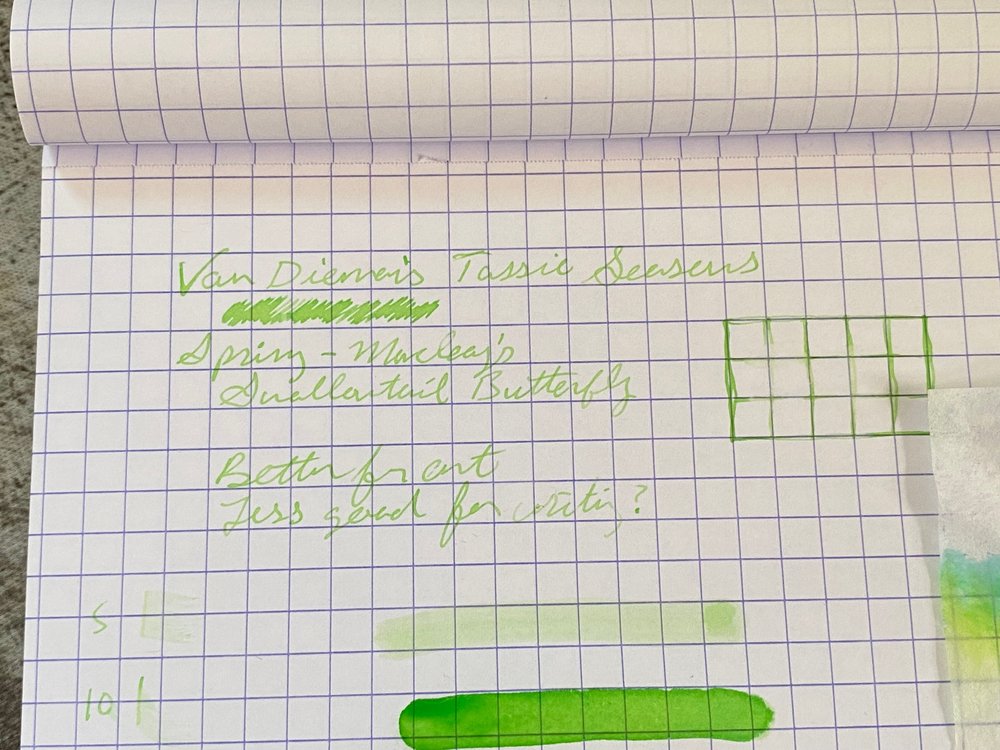 Van Dieman's Tassie Seasons
Spring - Macleay's
Swallowtail Butterfly
Better for art
Less good for writing?
5
10